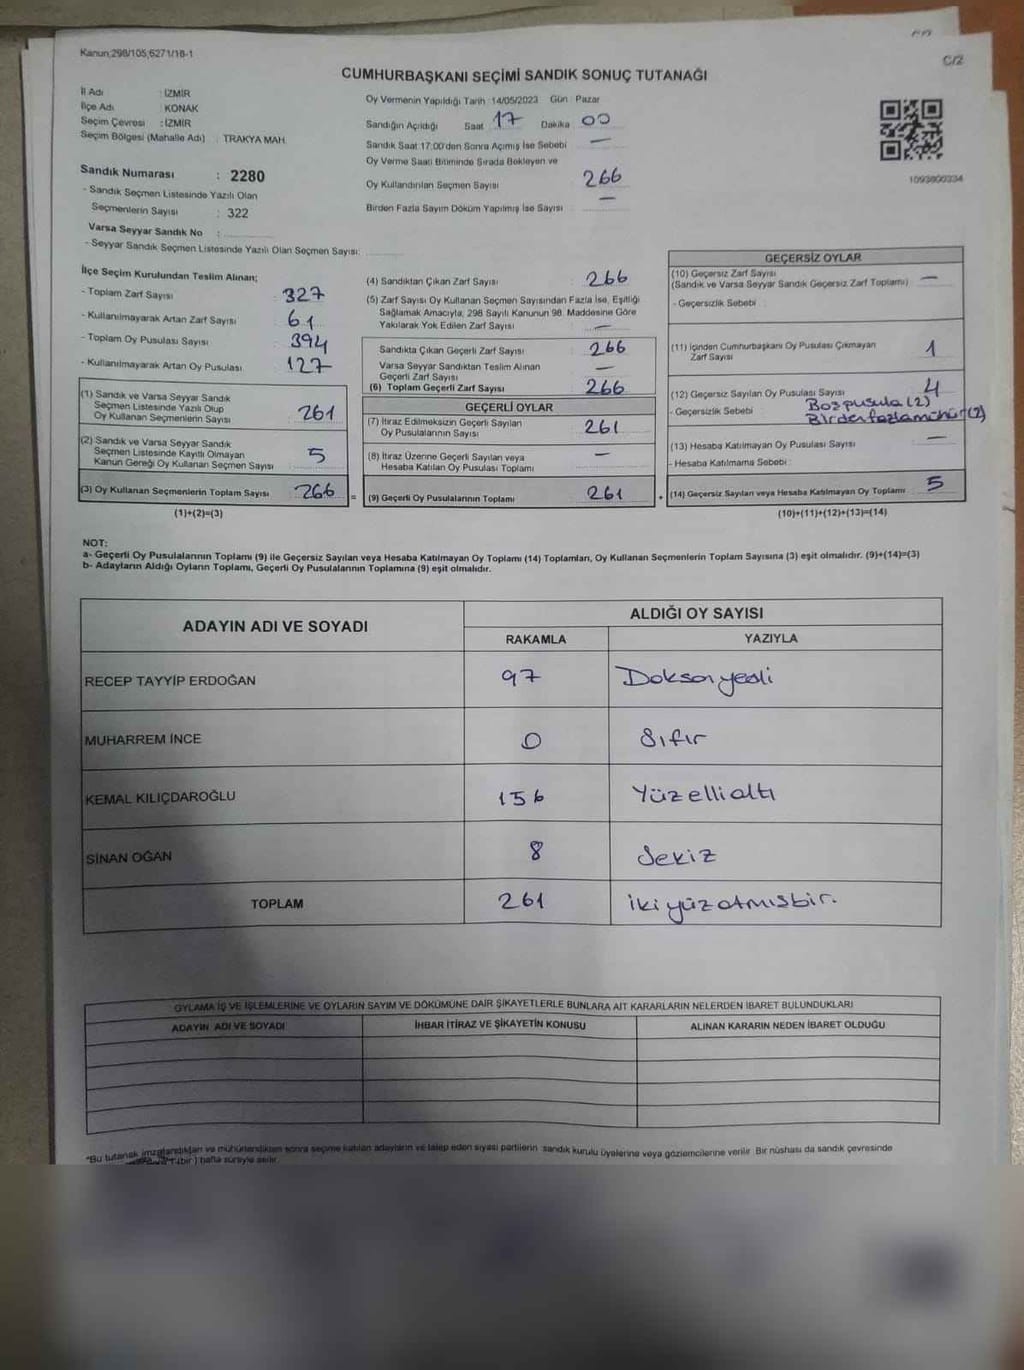 Kanun;298/105,6271/18-1
C/2
CUMHURBAŞKANI SEÇİMİ SANDIK SONUÇ TUTANAĞI
İl Adı : İZMİR
İlçe Adı : KONAK
Seçim Çevresi : İZMİR
Seçim Bölgesi (Mahalle Adı) : TRAKYA MAH.
Sandık Numarası : 2280
- Sandık Seçmen Listesinde Yazılı Olan
Seçmenlerin Sayısı : 322
Varsa Seyyar Sandık No :
- Seyyar Sandık Seçmen Listesinde Yazılı Olan Seçmen Sayısı:
Oy Vermenin Yapıldığı Tarih :14/05/2023 Gün : Pazar
Sandığın Açıldığı Saat 17 Dakika 00
Sandık Saat 17:00'den Sonra Açımış İse Sebebi —
Oy Verme Saati Bitiminde Sırada Bekleyen ve
Oy Kullandırılan Seçmen Sayısı 266
Birden Fazla Sayım Döküm Yapılmış İse Sayısı —
1093800334
İlçe Seçim Kurulundan Teslim Alınan;
- Toplam Zarf Sayısı 327
- Kullanılmayarak Artan Zarf Sayısı 61
- Toplam Oy Pusulası Sayısı 394
- Kullanılmayarak Artan Oy Pusulası 127
(1) Sandık ve Varsa Seyyar Sandık
Seçmen Listesinde Yazılı Olup
Oy Kullanan Seçmenlerin Sayısı 261
(2) Sandık ve Varsa Seyyar Sandık
Seçmen Listesinde Kayıtlı Olmayan
Kanun Gereği Oy Kullanan Seçmen Sayısı 5
(3) Oy Kullanan Seçmenlerin Toplam Sayısı 266 =
(1)+(2)=(3)
(4) Sandıktan Çıkan Zarf Sayısı 266
(5) Zarf Sayısı Oy Kullanan Seçmen Sayısından Fazla İse, Eşitliği
Sağlamak Amacıyla, 298 Sayılı Kanunun 98. Maddesine Göre
Yakılarak Yok Edilen Zarf Sayısı —
Sandıkta Çıkan Geçerli Zarf Sayısı 266
Varsa Seyyar Sandıktan Teslim Alınan
Geçerli Zarf Sayısı —
(6) Toplam Geçerli Zarf Sayısı 266
GEÇERLİ OYLAR
(7) İtiraz Edilmeksizin Geçerli Sayılan
Oy Pusulalarının Sayısı 261
(8) İtiraz Üzerine Geçerli Sayılan veya
Hesaba Katılan Oy Pusulası Toplamı —
(9) Geçerli Oy Pusulalarının Toplamı 261 +
GEÇERSİZ OYLAR
(10) Geçersiz Zarf Sayısı —
(Sandık ve Varsa Seyyar Sandık Geçersiz Zarf Toplamı)
- Geçersizlik Sebebi
(11) İçinden Cumhurbaşkanı Oy Pusulası Çıkmayan
Zarf Sayısı 1
(12) Geçersiz Sayılan Oy Pusulası Sayısı 4
- Geçersizlik Sebebi Boşpusula (2)
Birdenfazlamühür(2)
(13) Hesaba Katılmayan Oy Pusulası Sayısı —
- Hesaba Katılmama Sebebi :
(14) Geçersiz Sayılan veya Hesaba Katılmayan Oy Toplamı 5
(10)+(11)+(12)+(13)=(14)
NOT:
a- Geçerli Oy Pusulalarının Toplamı (9) ile Geçersiz Sayılan veya Hesaba Katılmayan Oy Toplamı (14) Toplamları, Oy Kullanan Seçmenlerin Toplam Sayısına (3) eşit olmalıdır. (9)+(14)=(3)
b- Adayların Aldığı Oyların Toplamı, Geçerli Oy Pusulalarının Toplamına (9) eşit olmalıdır.
ADAYIN ADI VE SOYADI
ALDIĞI OY SAYISI
RAKAMLA YAZIYLA
RECEP TAYYİP ERDOĞAN 97 Doksanyedi
MUHARREM İNCE 0 Sıfır
KEMAL KILIÇDAROĞLU 156 Yüzellialtı
SİNAN OĞAN 8 Sekiz
TOPLAM 261 ikiyüzatmışbir.
OYLAMA İŞ VE İŞLEMLERİNE VE OYLARIN SAYIM VE DÖKÜMÜNE DAİR ŞİKAYETLERLE BUNLARA AİT KARARLARIN NELERDEN İBARET BULUNDUKLARI
ADAYIN ADI VE SOYADI İHBAR İTİRAZ VE ŞİKAYETİN KONUSU ALINAN KARARIN NEDEN İBARET OLDUĞU
*Bu tutanak imzalandıktan ve mühürlendikten sonra seçime katılan adayların ve talep eden siyasi partilerin sandık kurulu üyelerine veya gözlemcilerine verilir. Bir nüshası da sandık çevresinde
(bir) hafta süreyle asılır.